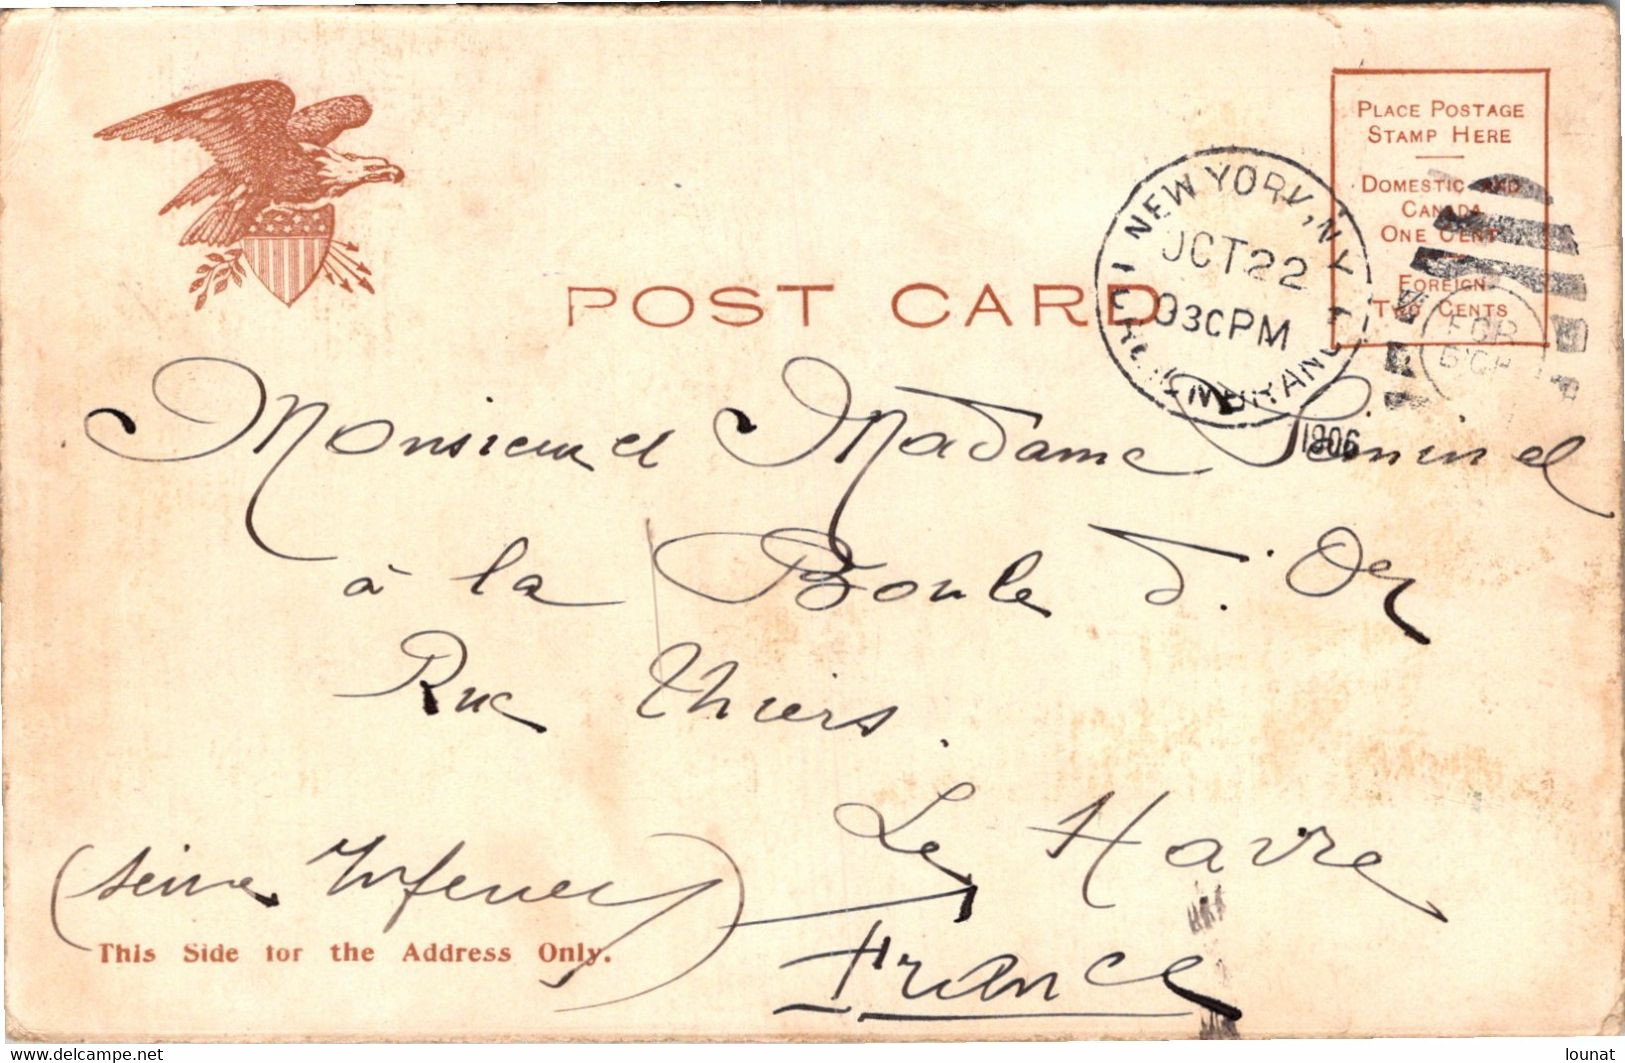 PLACE POSTAGE
STAMP HERE
DOMESTIC AND
CANADA
ONE CENT
FOREIGN
TWO CENTS
NEW YORK, N.Y.
OCT 22
930PM
1906
FOR
POST CARD
Monsieur et Madame
à la Boule d'Or
Rue Thiers.
Le Havre
(Seine Inferieure)
France
This Side for the Address Only.
www.delcampe.net
lounat